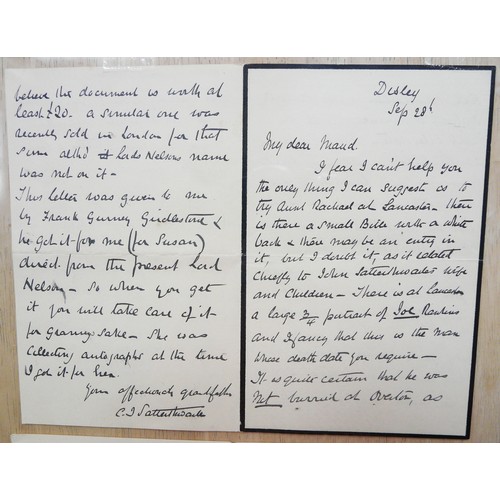 believe this document is worth at
least £20. a similar one was
recently sold in London for that
sum altho' it Lord Nelsons name
was not on it —
This letter was given to me
by Frank Gurney Girdlestone &
he got it from me (for Susan)
direct from the present Lord
Nelson — so when you get
it you will take care of it
for Granny sake — She was
collecting autographs at the time
I got it for her.
Your affectionate grandfather
C J Satterthwaite
Disley
Sep 28th
My dear Maud.
I fear I can't help you
the only thing I can suggest is to
try Aunt Rachael at Lancaster. There
is there a small Bible with a white
back & there may be an entry in
it, but I doubt it, as it relates
chiefly to John Satterthwaites wife
and Children — There is at Lancaster
a large 3/4 portrait of Joe Rawlins
and I fancy that this is the man
whose death date you require —
It is quite certain that he was
not burried at Overton, as